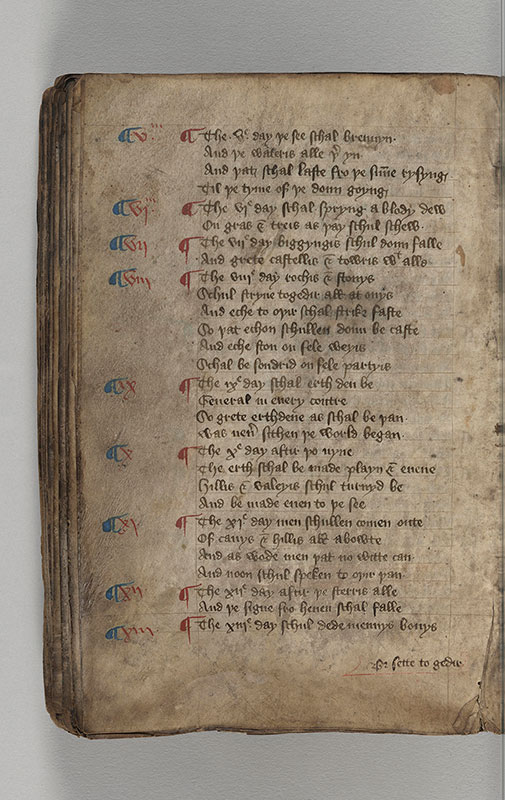 ¶v ¶ The .vͨ. day þe see schal brennyn.
And þe wateris alle þͬ yn
And þat schal laste fro þe sūne rysyng
Til þe tyme of þe doun goyng
¶vi ¶ The viͨ day schal spryng a blody dew
On gras & treis as þay schul schew.
¶vii ¶ The viiͨ day biggyngis schul doun falle
And grete castellis & towris wͭ alle
¶viii ¶ The viiiͨ day rochis & stonys
Schul stryue togedir alle at onys
And eche to oþir schal strike faste
So þat echon schullen doun be caste
And eche ston on sele weyis
Schal be sondrid on sele partyis
¶ix ¶ The ixͨ day schal erth den be
General in euery contre
So grete erthdene as schal be þan.
Was neū sithen þe world began.
¶x ¶ The xͨ day aftir þo nyne
The erth schal be made playn & euene
Hillis & valeyis schul turnyd be
And be made euen to þe see
¶xi ¶ The xiͨ day men schullen comen oute
Of cauys & hillis alle abowte
And as wode men þat no witte can.
And noon schul speken to oþir þan.
¶xii ¶ The xiiͨ day aftir þe sterris alle
And þe signe fro heuen schal falle
¶xiii ¶ The xiiiͨ day schul dede mennys bonys
sette to gedir